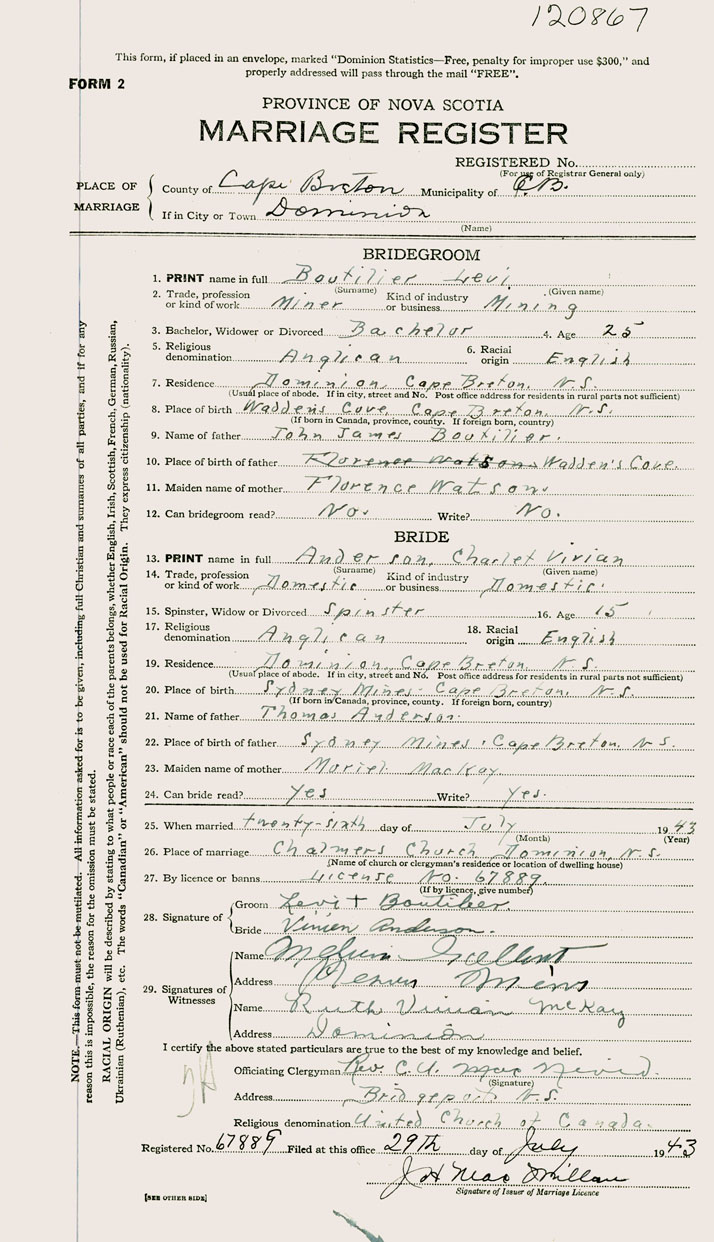 120867
This form, if placed in an envelope, marked "Dominion Statistics—Free, penalty for improper use $300," and
properly addressed will pass through the mail "FREE".
FORM 2
PROVINCE OF NOVA SCOTIA
MARRIAGE REGISTER
REGISTERED No.
(For use of Registrar General only)
PLACE OF MARRIAGE
County of Cape Breton Municipality of C.B.
If in City or Town Dominion
(Name)
BRIDEGROOM
1. PRINT name in full Boutilier Levi
(Surname) (Given name)
2. Trade, profession or kind of work Miner Kind of industry or business Mining
3. Bachelor, Widower or Divorced Bachelor 4. Age 25
5. Religious denomination Anglican 6. Racial origin English
7. Residence Dominion, Cape Breton, N.S.
(Usual place of abode. If in city, street and No. Post office address for residents in rural parts not sufficient)
8. Place of birth Wadden's Cove, Cape Breton, N.S.
(If born in Canada, province, county. If foreign born, country)
9. Name of father John James Boutilier.
10. Place of birth of father Florence Watson. Wadden's Cove.
11. Maiden name of mother Florence Watson.
12. Can bridegroom read? No. Write? No.
BRIDE
13. PRINT name in full Anderson, Charlet Vivian
(Surname) (Given name)
14. Trade, profession or kind of work Domestic Kind of industry or business Domestic.
15. Spinster, Widow or Divorced Spinster 16. Age 15
17. Religious denomination Anglican 18. Racial origin English
19. Residence Dominion, Cape Breton, N.S.
(Usual place of abode. If in city, street and No. Post office address for residents in rural parts not sufficient)
20. Place of birth Sydney Mines. Cape Breton, N.S.
(If born in Canada, province, county. If foreign born, country)
21. Name of father Thomas Anderson.
22. Place of birth of father Sydney Mines, Cape Breton, N.S.
23. Maiden name of mother Muriel MacKay
24. Can bride read? Yes Write? Yes.
25. When married twenty-sixth day of July 1943
(Month) (Year)
26. Place of marriage Chalmers Church Dominion, N.S.
(Name of church or clergyman's residence or location of dwelling house)
27. By licence or banns License No. 67889
(If by licence, give number)
28. Signature of
Groom Levi + Boutilier.
Bride Vivien Anderson.
29. Signatures of Witnesses
Name
Address
Name Ruth Vivian McKay
Address Dominion
I certify the above stated particulars are true to the best of my knowledge and belief.
Officiating Clergyman Rev. C. U. Mac Nevid.
(Signature)
Address Bridgeport N.S.
Religious denomination United Church of Canada.
Registered No. 67889 Filed at this office 29th day of July 1943
J H MacMillan
Signature of Issuer of Marriage Licence
[SEE OTHER SIDE]
NOTE.—This form must not be mutilated. All information asked for is to be given, including full Christian and surnames of all parties, and if for any
reason this is impossible, the reason for the omission must be stated.
RACIAL ORIGIN will be described by stating to what people or race each of the parents belongs, whether English, Irish, Scottish, French, German, Russian,
Ukrainian (Ruthenian), etc. The words "Canadian" or "American" should not be used for Racial Origin. They express citizenship (nationality).